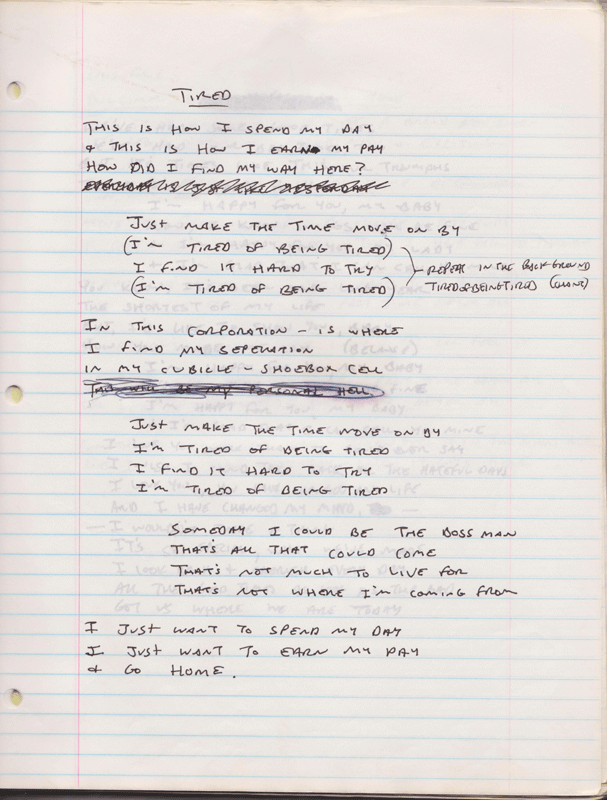 TIRED
THIS IS HOW I SPEND MY DAY
& THIS IS HOW I EARN MY PAY
HOW DID I FIND MY WAY HERE?
JUST MAKE THE TIME MOVE ON BY
(I'M TIRED OF BEING TIRED)
I FIND IT HARD TO TRY
(I'M TIRED OF BEING TIRED)
- REPEAT IN THE BACKGROUND
TIRED OF BEING TIRED
IN THIS CORPORATION - IS WHERE
I FIND MY SEPERATION
IN MY CUBICLE - SHOEBOX CELL
THIS WILL BE MY PERSONAL HELL
JUST MAKE THE TIME MOVE ON BY
I'M TIRED OF BEING TIRED
I FIND IT HARD TO TRY
I'M TIRED OF BEING TIRED
SOMEDAY I COULD BE THE BOSS MAN
THAT'S ALL THAT COULD COME
THAT'S NOT MUCH TO LIVE FOR
THAT'S NOT WHERE I'M COMING FROM
I JUST WANT TO SPEND MY DAY
I JUST WANT TO EARN MY PAY
& GO HOME.